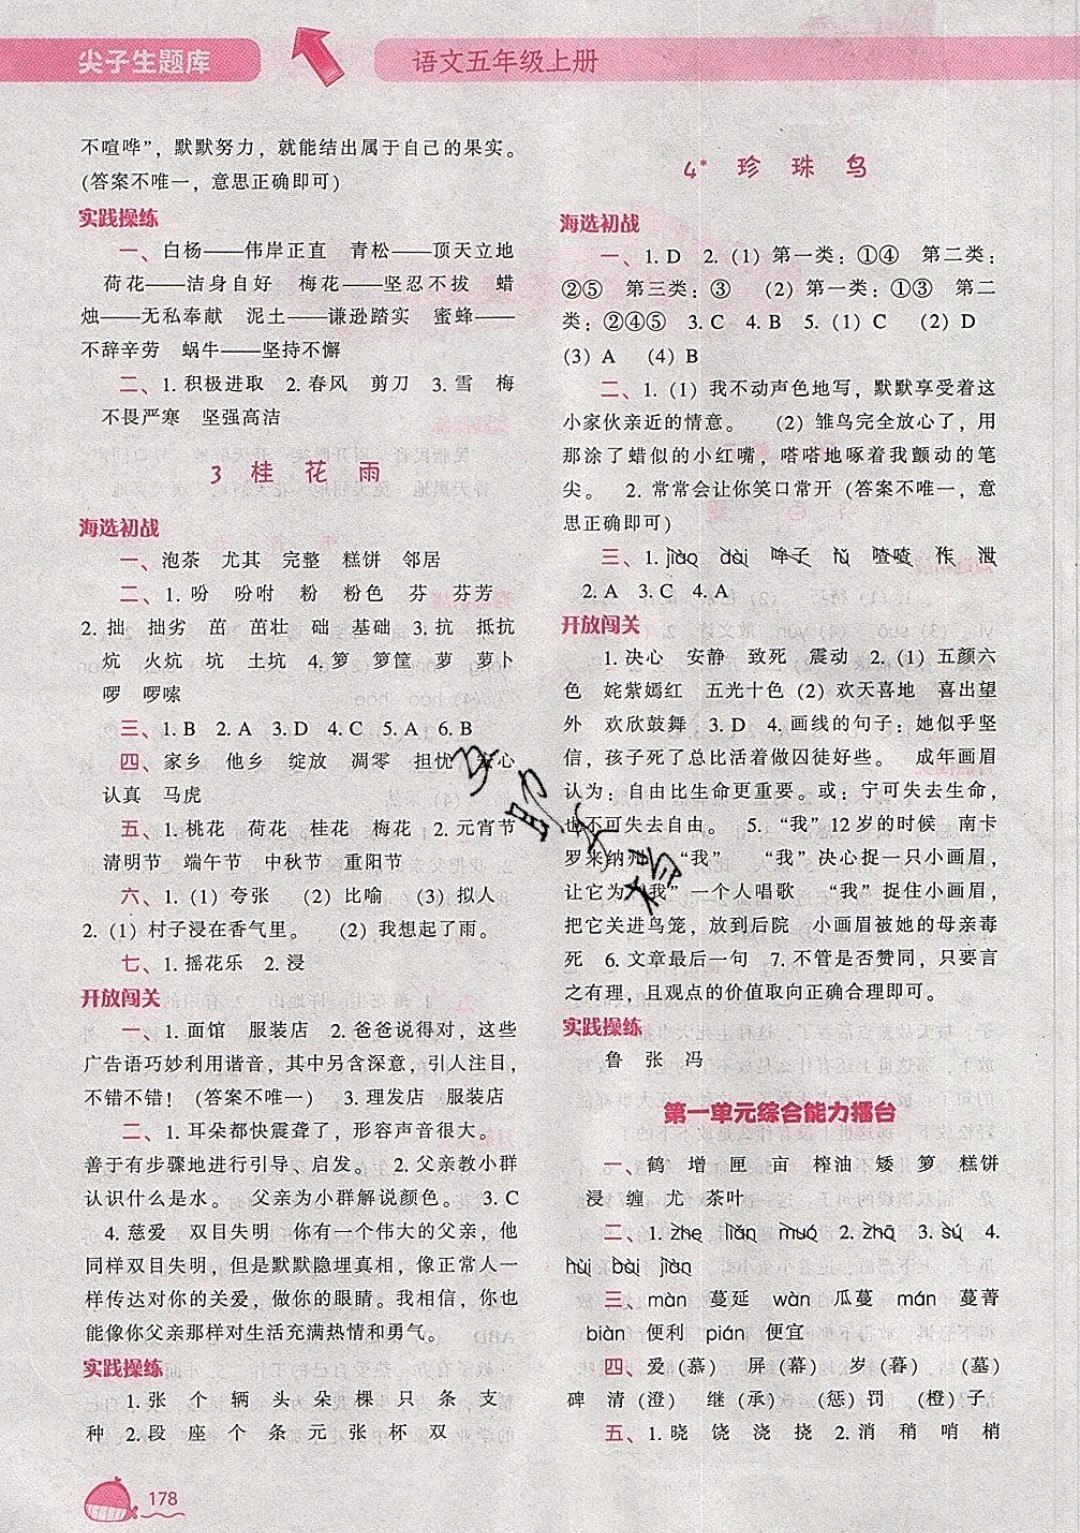 尖子生题库
语文五年级上册
不喧哗”，默默努力，就能结出属于自己的果实。
(答案不唯一，意思正确即可)
实践操练
一、白杨——伟岸正直　青松——顶天立地
荷花——洁身自好　梅花——坚忍不拔　蜡
烛——无私奉献　泥土——谦逊踏实　蜜蜂——
不辞辛劳　蜗牛——坚持不懈
二、1. 积极进取　2. 春风　剪刀　3. 雪　梅
不畏严寒　坚强高洁
3　桂　花　雨
海选初战
一、泡茶　尤其　完整　糕饼　邻居
二、1. 吩　吩咐　粉　粉色　芬　芬芳
2. 拙　拙劣　茁　茁壮　础　基础　3. 抗　抵抗
炕　火炕　坑　土坑　4. 箩　箩筐　萝　萝卜
啰　啰嗦
三、1. B　2. A　3. D　4. C　5. A　6. B
四、家乡　他乡　绽放　凋零　担忧　安心
认真　马虎
五、1. 桃花　荷花　桂花　梅花　2. 元宵节
清明节　端午节　中秋节　重阳节
六、1. (1) 夸张　(2) 比喻　(3) 拟人
2. (1) 村子浸在香气里。　(2) 我想起了雨。
七、1. 摇花乐　2. 浸
开放闯关
一、1. 面馆　服装店　2. 爸爸说得对，这些
广告语巧妙利用谐音，其中另含深意，引人注目，
不错不错！(答案不唯一)　3. 理发店　服装店
二、1. 耳朵都快震聋了，形容声音很大。
善于有步骤地进行引导、启发。　2. 父亲教小群
认识什么是水。　父亲为小群解说颜色。　3. C
4. 慈爱　双目失明　你有一个伟大的父亲，他
同样双目失明，但是默默隐埋真相，像正常人一
样传达对你的关爱，做你的眼睛。我相信，你也
能像你父亲那样对生活充满热情和勇气。
实践操练
1. 张　个　辆　头　朵　棵　只　条　支
种　2. 段　座　个　条　元　张　杯　双
178
4*　珍　珠　鸟
海选初战
一、1. D　2. (1) 第一类：①④　第二类：
②⑤　第三类：③　(2) 第一类：①③　第二
类：②④⑤　3. C　4. B　5. (1) C　(2) D
(3) A　(4) B
二、1. (1) 我不动声色地写，默默享受着这
小家伙亲近的情意。　(2) 雏鸟完全放心了，用
那涂了蜡似的小红嘴，嗒嗒地啄着我颤动的笔
尖。　2. 常常会让你笑口常开 (答案不唯一，意
思正确即可)
三、1. jiào　dài　哞子　fú　喳喳　柞　泄
2. A　3. C　4. A
开放闯关
1. 决心　安静　致死　震动　2. (1) 五颜六
色　姹紫嫣红　五光十色 (2) 欢天喜地　喜出望
外　欢欣鼓舞　3. D　4. 画线的句子：她似乎坚
信，孩子死了总比活着做囚徒好些。　成年画眉
认为：自由比生命更重要。或：宁可失去生命，
也不可失去自由。　5. “我”12岁的时候　南卡
罗来纳州　“我”　“我”决心捉一只小画眉，
让它为“我”一个人唱歌　“我”捉住小画眉，
把它关进鸟笼，放到后院　小画眉被她的母亲毒
死　6. 文章最后一句　7. 不管是否赞同，只要言
之有理，且观点的价值取向正确合理即可。
实践操练
鲁　张　冯
第一单元综合能力擂台
一、鹤　增　匣　亩　榨油　矮　箩　糕饼
浸　缠　尤　茶叶
二、1. zhe　liǎn　muó　2. zhā　3. sú　4.
huì　bài　jiàn
三、màn　蔓延　wàn　瓜蔓　mán　蔓菁
biàn　便利　pián　便宜
四、爱 (慕)　屏 (幕)　岁 (暮)　(墓)
碑　清 (澄)　继 (承)　(惩) 罚　(橙) 子
五、1. 晓　饶　浇　挠　2. 消　稍　哨　梢